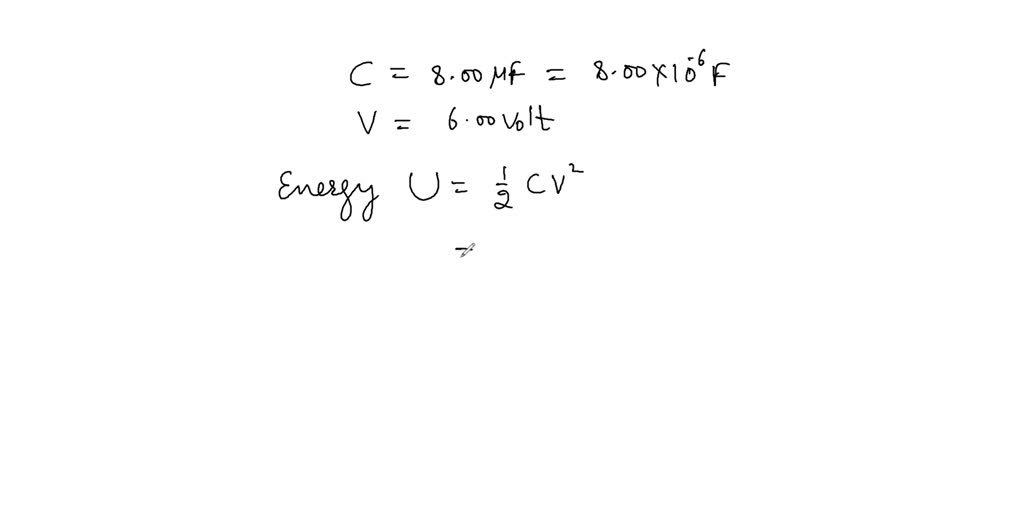 C = 8.00 μF = 8.00×10⁻⁶ F
V = 6.00 volt
Energy U = ½ CV²
=